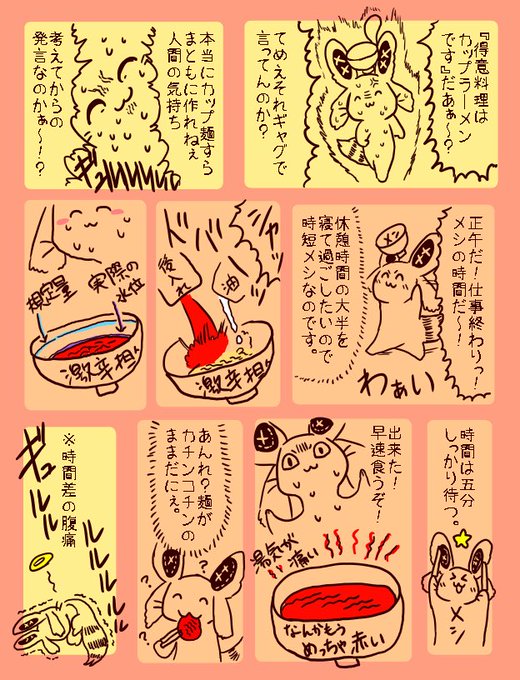 『得意料理は
カップラーメン
です』だあぁ〜?
てめえそれギャグで
言ってんのか?
本当にカップ麺すら
まともに作れねぇ
人間の気持ち
考えてからの
発言なのかぁ〜!?
ギュ
正午だ!仕事終わりっ!
メシの時間だ〜!
メシ
わぁい
休憩時間の大半を
寝て過ごしたいので
時短メシなのです。
ドバッ
後入れ
油
激辛担々
規定量
実際の
水位
激辛担々
時間は五分
しっかり待つ。
メシ
出来た!
早速食うぞ!
湯気が
痛い
なんかもう
めっちゃ赤い
あんれ?麺が
カチンコチンの
ままだにぇ。
?
?
※時間差の腹痛
ギュルルル
ルルルル